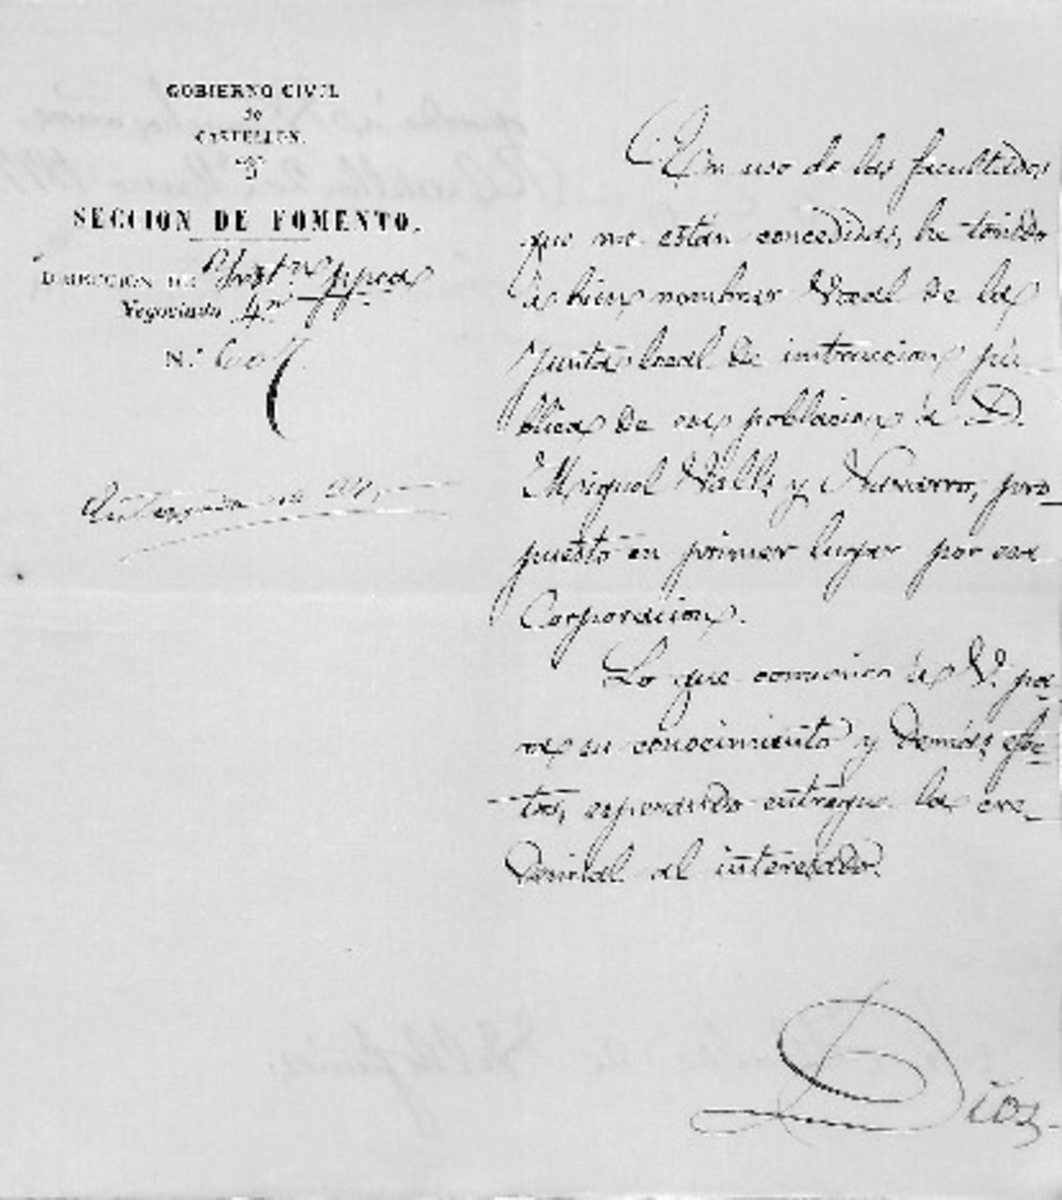 GOBIERNO CIVIL
de
CASTELLON.
SECCION DE FOMENTO.
DIRECCION DE Ynst.n ppca
Negociado 4.º
N.º 607
En uso de las facultades
que me están concedidas, he tenido
á bien nombrar Vocal de la
Junta local de instruccion pú-
blica de esa poblacion á D.
Miguel Valls y Navarro, pro-
puesto en primer lugar por esa
Corporacion.
Lo que comunico á V. pa-
ra su conocimiento y demás efec-
tos, esperando entregue la cre-
dencial al interesado.
Dios